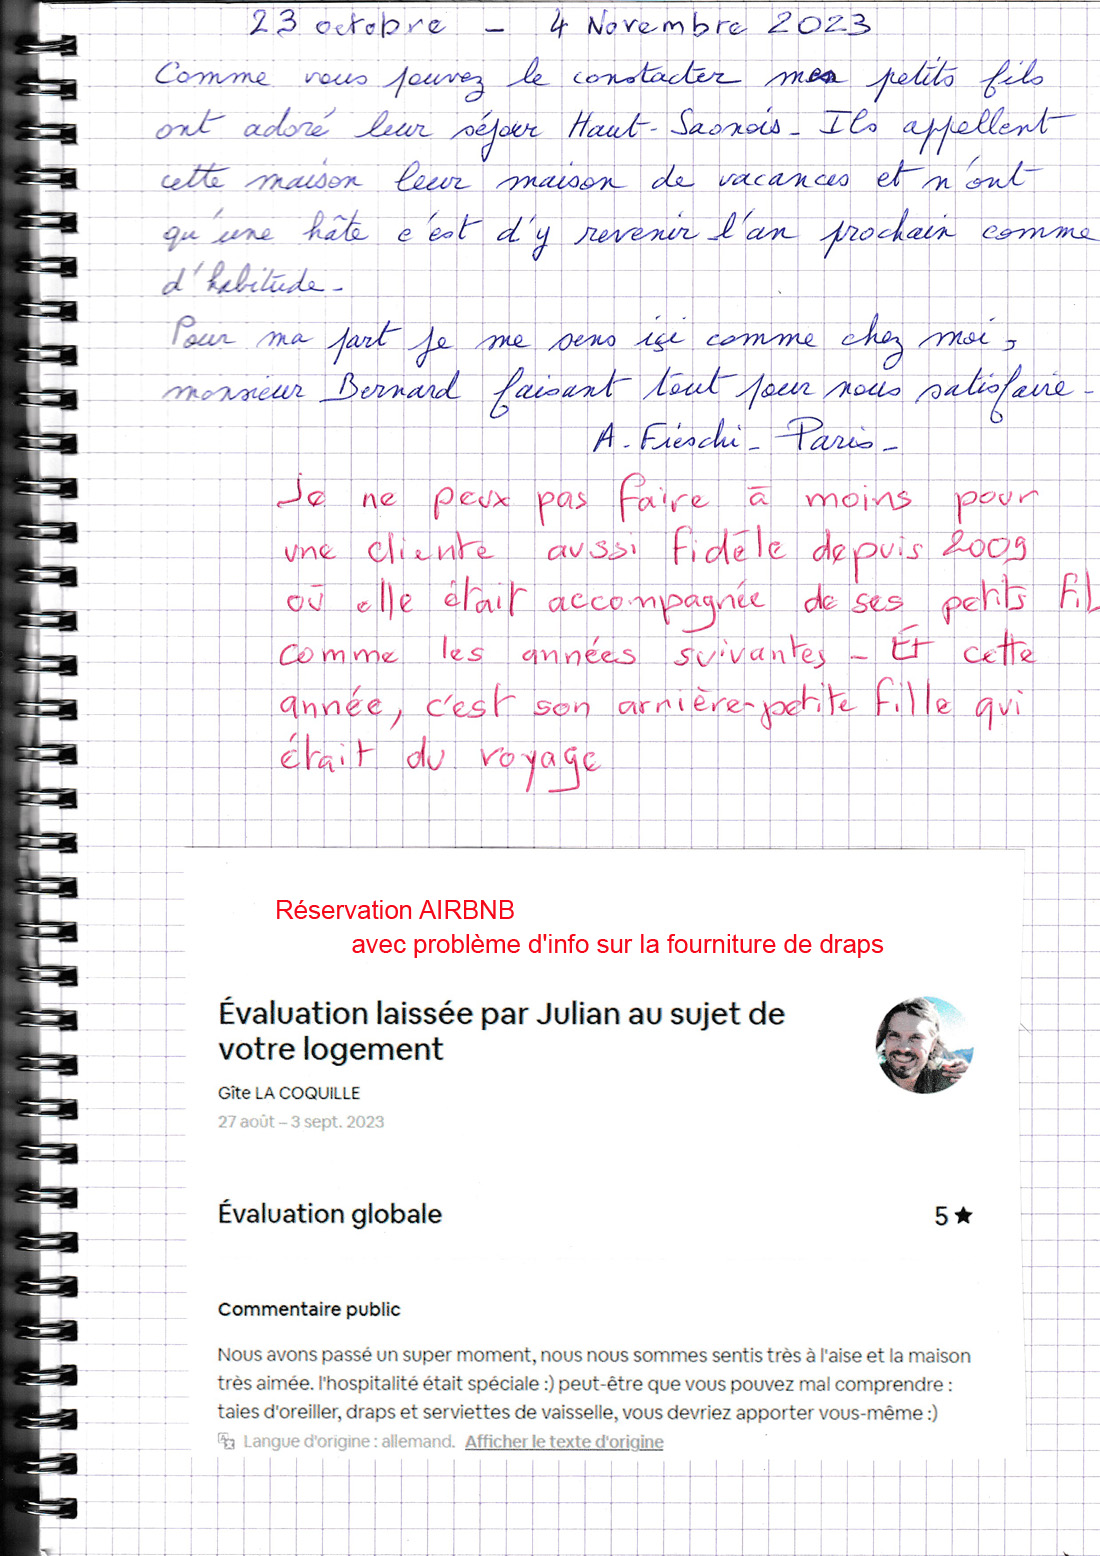 23 octobre - 4 Novembre 2023
Comme vous pouvez le constacter mes petits fils
ont adoré leur séjour Haut-Saonois - Ils appellent
cette maison leur maison de vacances et n'ont
qu'une hâte c'est d'y revenir l'an prochain comme
d'habitude -
Pour ma part je me sens ici comme chez moi,
monsieur Bernard faisant tout pour nous satisfaire -
A. Fieschi - Paris -
Je ne peux pas faire à moins pour
une cliente aussi fidèle depuis 2009
où elle était accompagnée de ses petits fil
comme les années suivantes - Et cette
année, c'est son arrière-petite fille qui
était du voyage
Réservation AIRBNB
avec problème d'info sur la fourniture de draps
Évaluation laissée par Julian au sujet de
votre logement
Gîte LA COQUILLE
27 août – 3 sept. 2023
Évaluation globale 5 ★
Commentaire public
Nous avons passé un super moment, nous nous sommes sentis très à l'aise et la maison
très aimée. l'hospitalité était spéciale :) peut-être que vous pouvez mal comprendre :
taies d'oreiller, draps et serviettes de vaisselle, vous devriez apporter vous-même :)
Langue d'origine : allemand. Afficher le texte d'origine